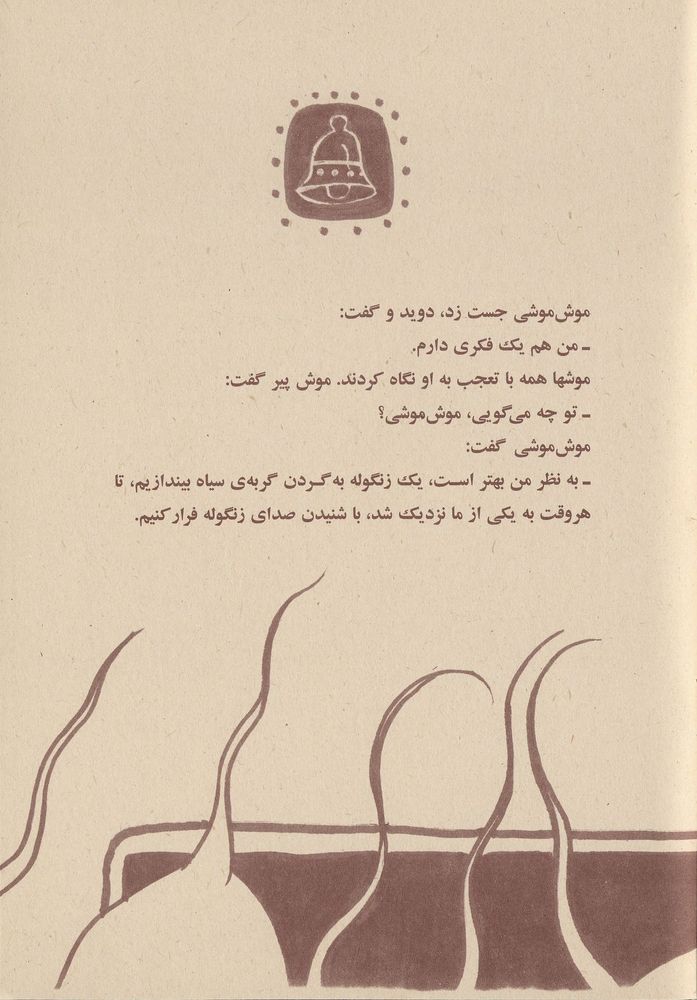 موش‌موشی جست زد، دوید و گفت:
ـ من هم یک فکری دارم.
موشها همه با تعجب به او نگاه کردند. موش پیر گفت:
ـ تو چه می‌گویی، موش‌موشی؟
موش‌موشی گفت:
ـ به نظر من بهتر است، یک زنگوله به گردن گربه‌ی سیاه بیندازیم، تا
هروقت به یکی از ما نزدیک شد، با شنیدن صدای زنگوله فرار کنیم.